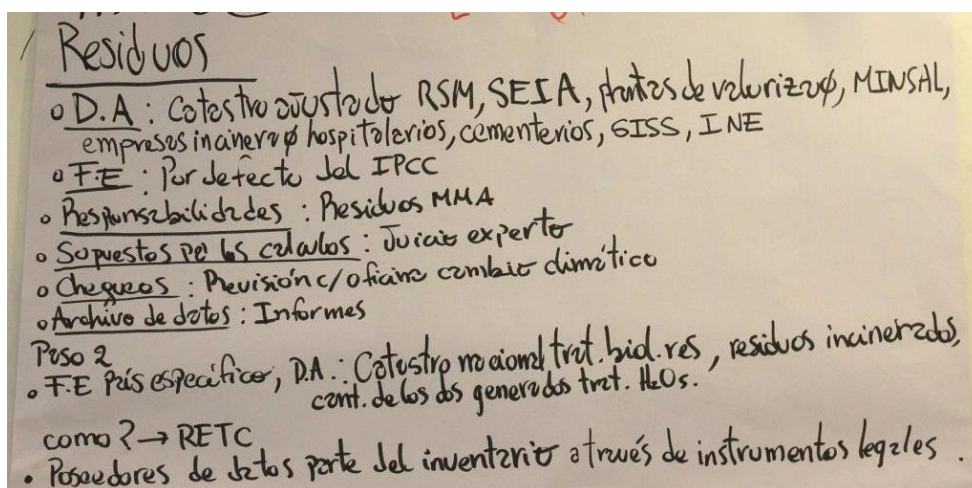 Residuos
o D.A : Catastro ajustado RSM, SEIA, plantas de valorizaφ, MINSAL,
empresas incineraφ hospitalarios, cementerios, SISS, INE
o F.E : Por defecto del IPCC
o Responsabilidades : Residuos MMA
o Supuestos pa los calculos : Juicio experto
o Chequeos : Previsión c/oficina cambio climático
o Archivo de datos : Informes
Paso 2
• F.E País específico, D.A.: Catastro nacional trat. biol. res, residuos incinerados,
cant. de lodos generados trat. H2Os.
como ? → RETC
• Poseedores de datos parte del inventario a través de instrumentos legales.